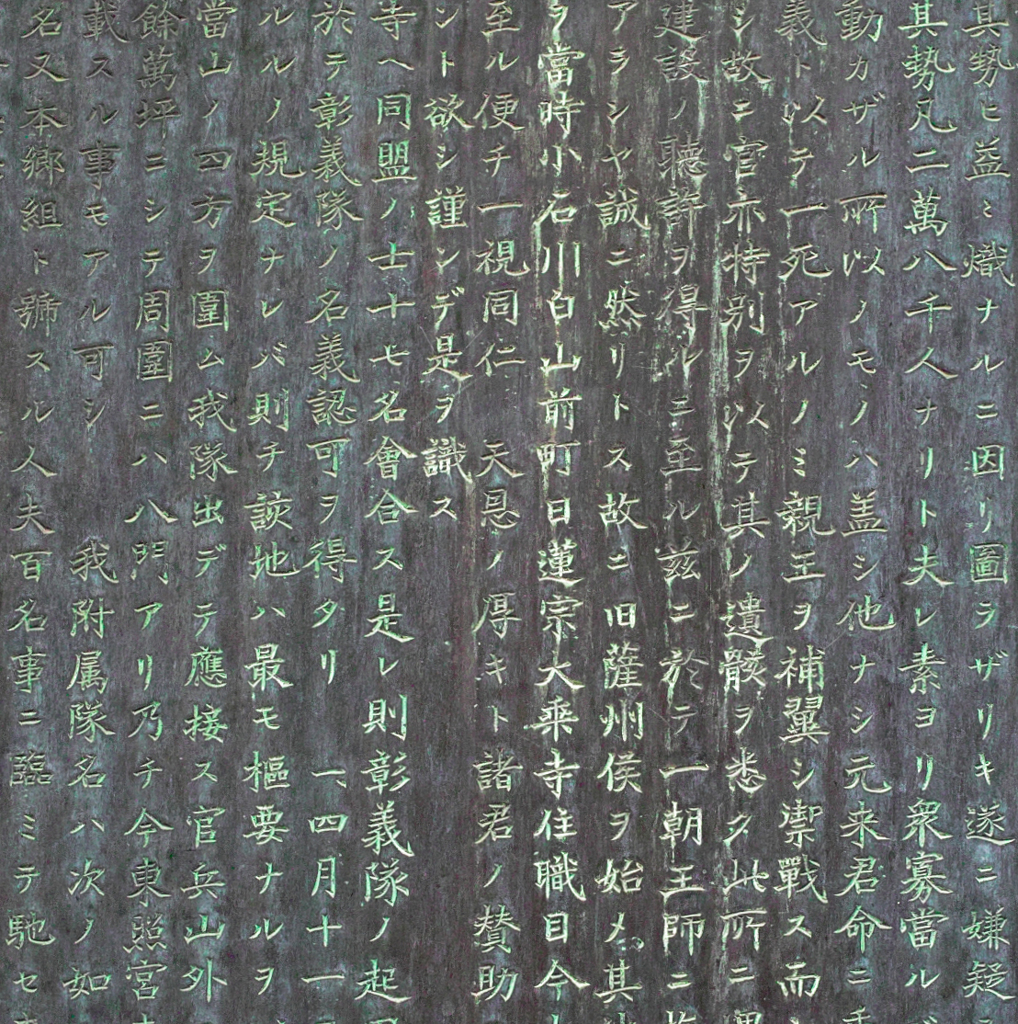 其勢ヒ益ミ熾ナルニ因リ圖ラザリキ遂ニ嫌疑
其勢凡二萬八千人ナリト夫レ素ヨリ衆寡當ル
動カザル所以ノモノハ盖シ他ナシ元来君命ニ
義ト以テ一死アルノミ親王ヲ補翼シ禦戰ス而
シ故ニ官亦特別ヲ以テ其ノ遺骸ヲ悉ク此所ニ
建設ノ聽許ヲ得ルニ至ル茲ニ於テ一朝王師ニ
アラシヤ誠ニ然リトス故ニ旧薩州侯ヲ始メ其
ヲ當時小石川白山前町日蓮宗大乗寺住職目今
至ル便チ一視同仁 天恩ノ厚キト諸君ノ賛助
ント欲シ謹ンデ是ヲ識ス
寺ヘ同盟ノ士十七名會合ス是レ則彰義隊ノ起
於テ彰義隊ノ名義認可ヲ得タリ 一、四月十一
ルルノ規定ナレバ則チ該地ハ最モ樞要ナルヲ
當山ノ四方ヲ圍ム我隊出デテ應接ス官兵山外
餘萬坪ニシテ周圍ニハ八門アリ乃チ今東照宮
載スル事モアル可シ 我附属隊名ハ次ノ如
名又本郷組ト號スル人夫百名事ニ臨ミテ馳セ